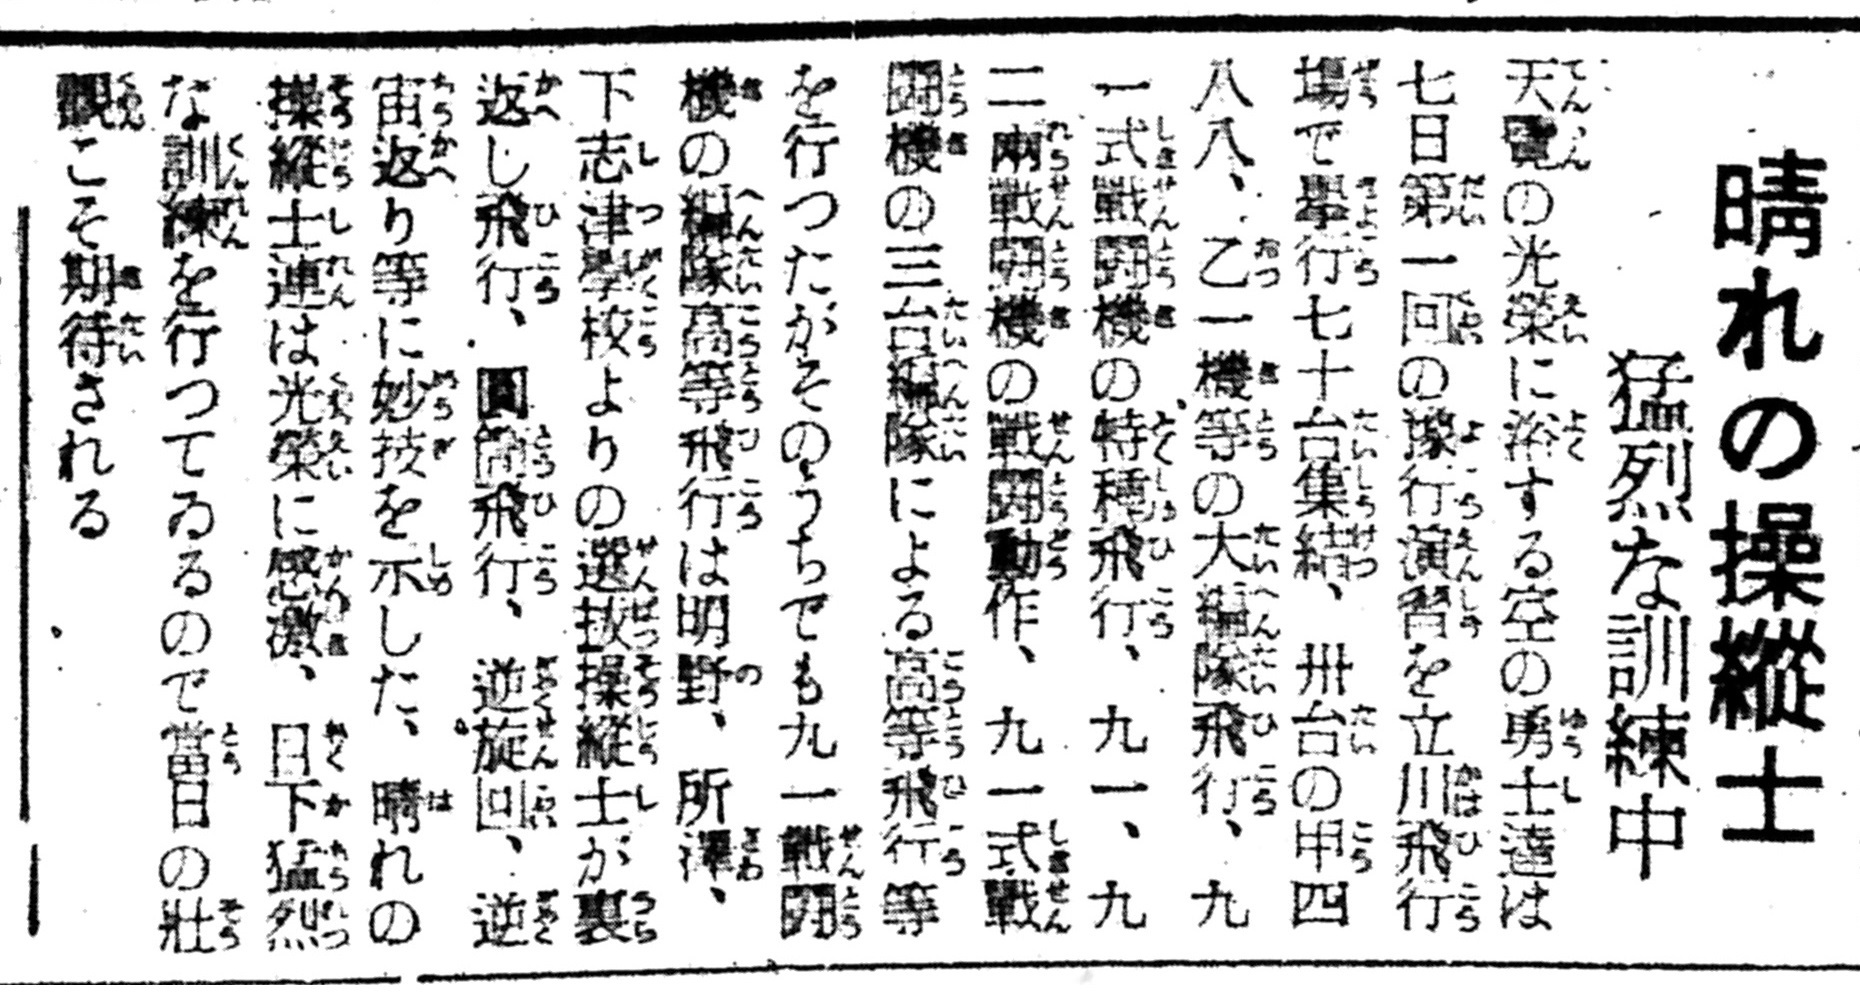 晴れの操縱士
猛烈な訓練中
天覽の光榮に浴する空の勇士達は
七日第一回の豫行演習を立川飛行
場で擧行七十台集結、卅台の甲四
八八、乙一機等の大編隊飛行、九
一式戰鬪機の特種飛行、九一、九
二兩戰鬪機の戰鬪動作、九一式戰
鬪機の三台編隊による高等飛行等
を行つたがそのうちでも九一戰鬪
機の編隊高等飛行は明野、所澤、
下志津學校よりの選拔操縱士が裏
返し飛行、圓筒飛行、逆旋回、逆
宙返り等に妙技を示した、晴れの
操縱士連は光榮に感激、目下猛烈
な訓練を行つてゐるので當日の壯
觀こそ期待される